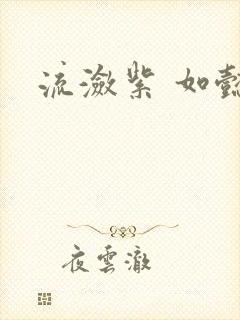 流瀲紫 如懿
夜雲澈